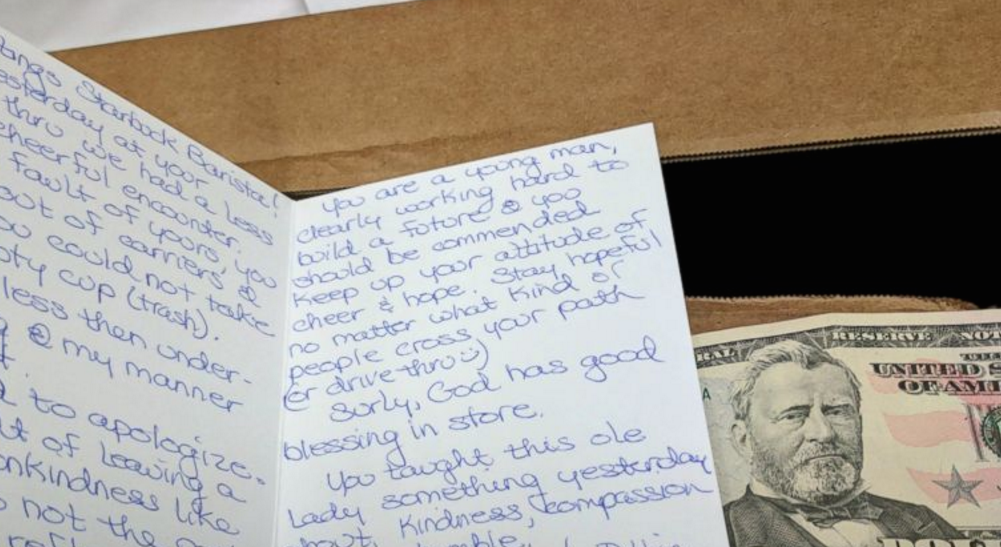 Starbuck Barista!
yesterday at your
thru we had a less
cheerful encounter.
fault of yours, you
out of carriers, &
could not take
cup (trash).
less then under-
@ my manner
to apologize.
of leaving a
like
not the
You are a young man,
clearly working hard to
build a future & you
should be commended
Keep up your attitude of
cheer & hope. Stay hopeful
no matter what kind of
people cross your path
(or drive thru :)
Surly, God has good
blessing in store.
You taught this ole
Lady something yesterday
Kindness, compassion
RESERVE NOT
UNITED S
OF AM
A